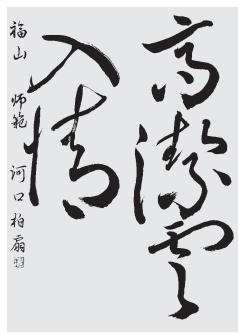 高潔雲
入情
福山 师範 河口柏扇